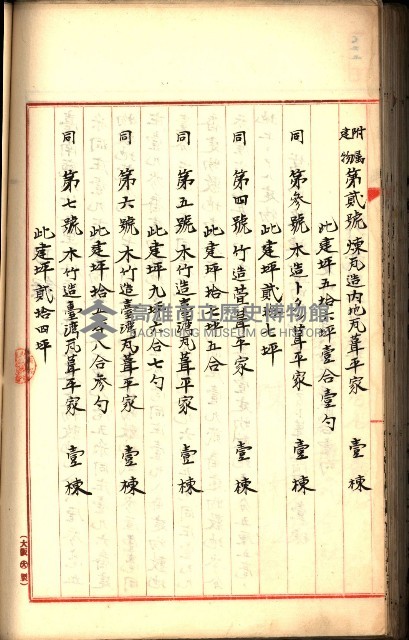 附屬建物 第貳號 煉瓦造內地瓦葺平家 壹棟
此建坪五拾 坪壹合壹勺
同 第參號 木造トタン葺平家 壹棟
此建坪貳 坪
同 第四號 竹造萱葺平家 壹棟
此建坪拾 坪五合
同 第五號 木竹造臺灣瓦葺平家 壹棟
此建坪九坪 合七勺
同 第六號 木竹造臺灣瓦葺平家 壹棟
此建坪拾 坪八合參勺
同 第七號 木竹造臺灣瓦葺平家 壹棟
此建坪貳拾四坪
高雄市立歷史博物館
KAOHSIUNG MUSEUM OF HISTORY